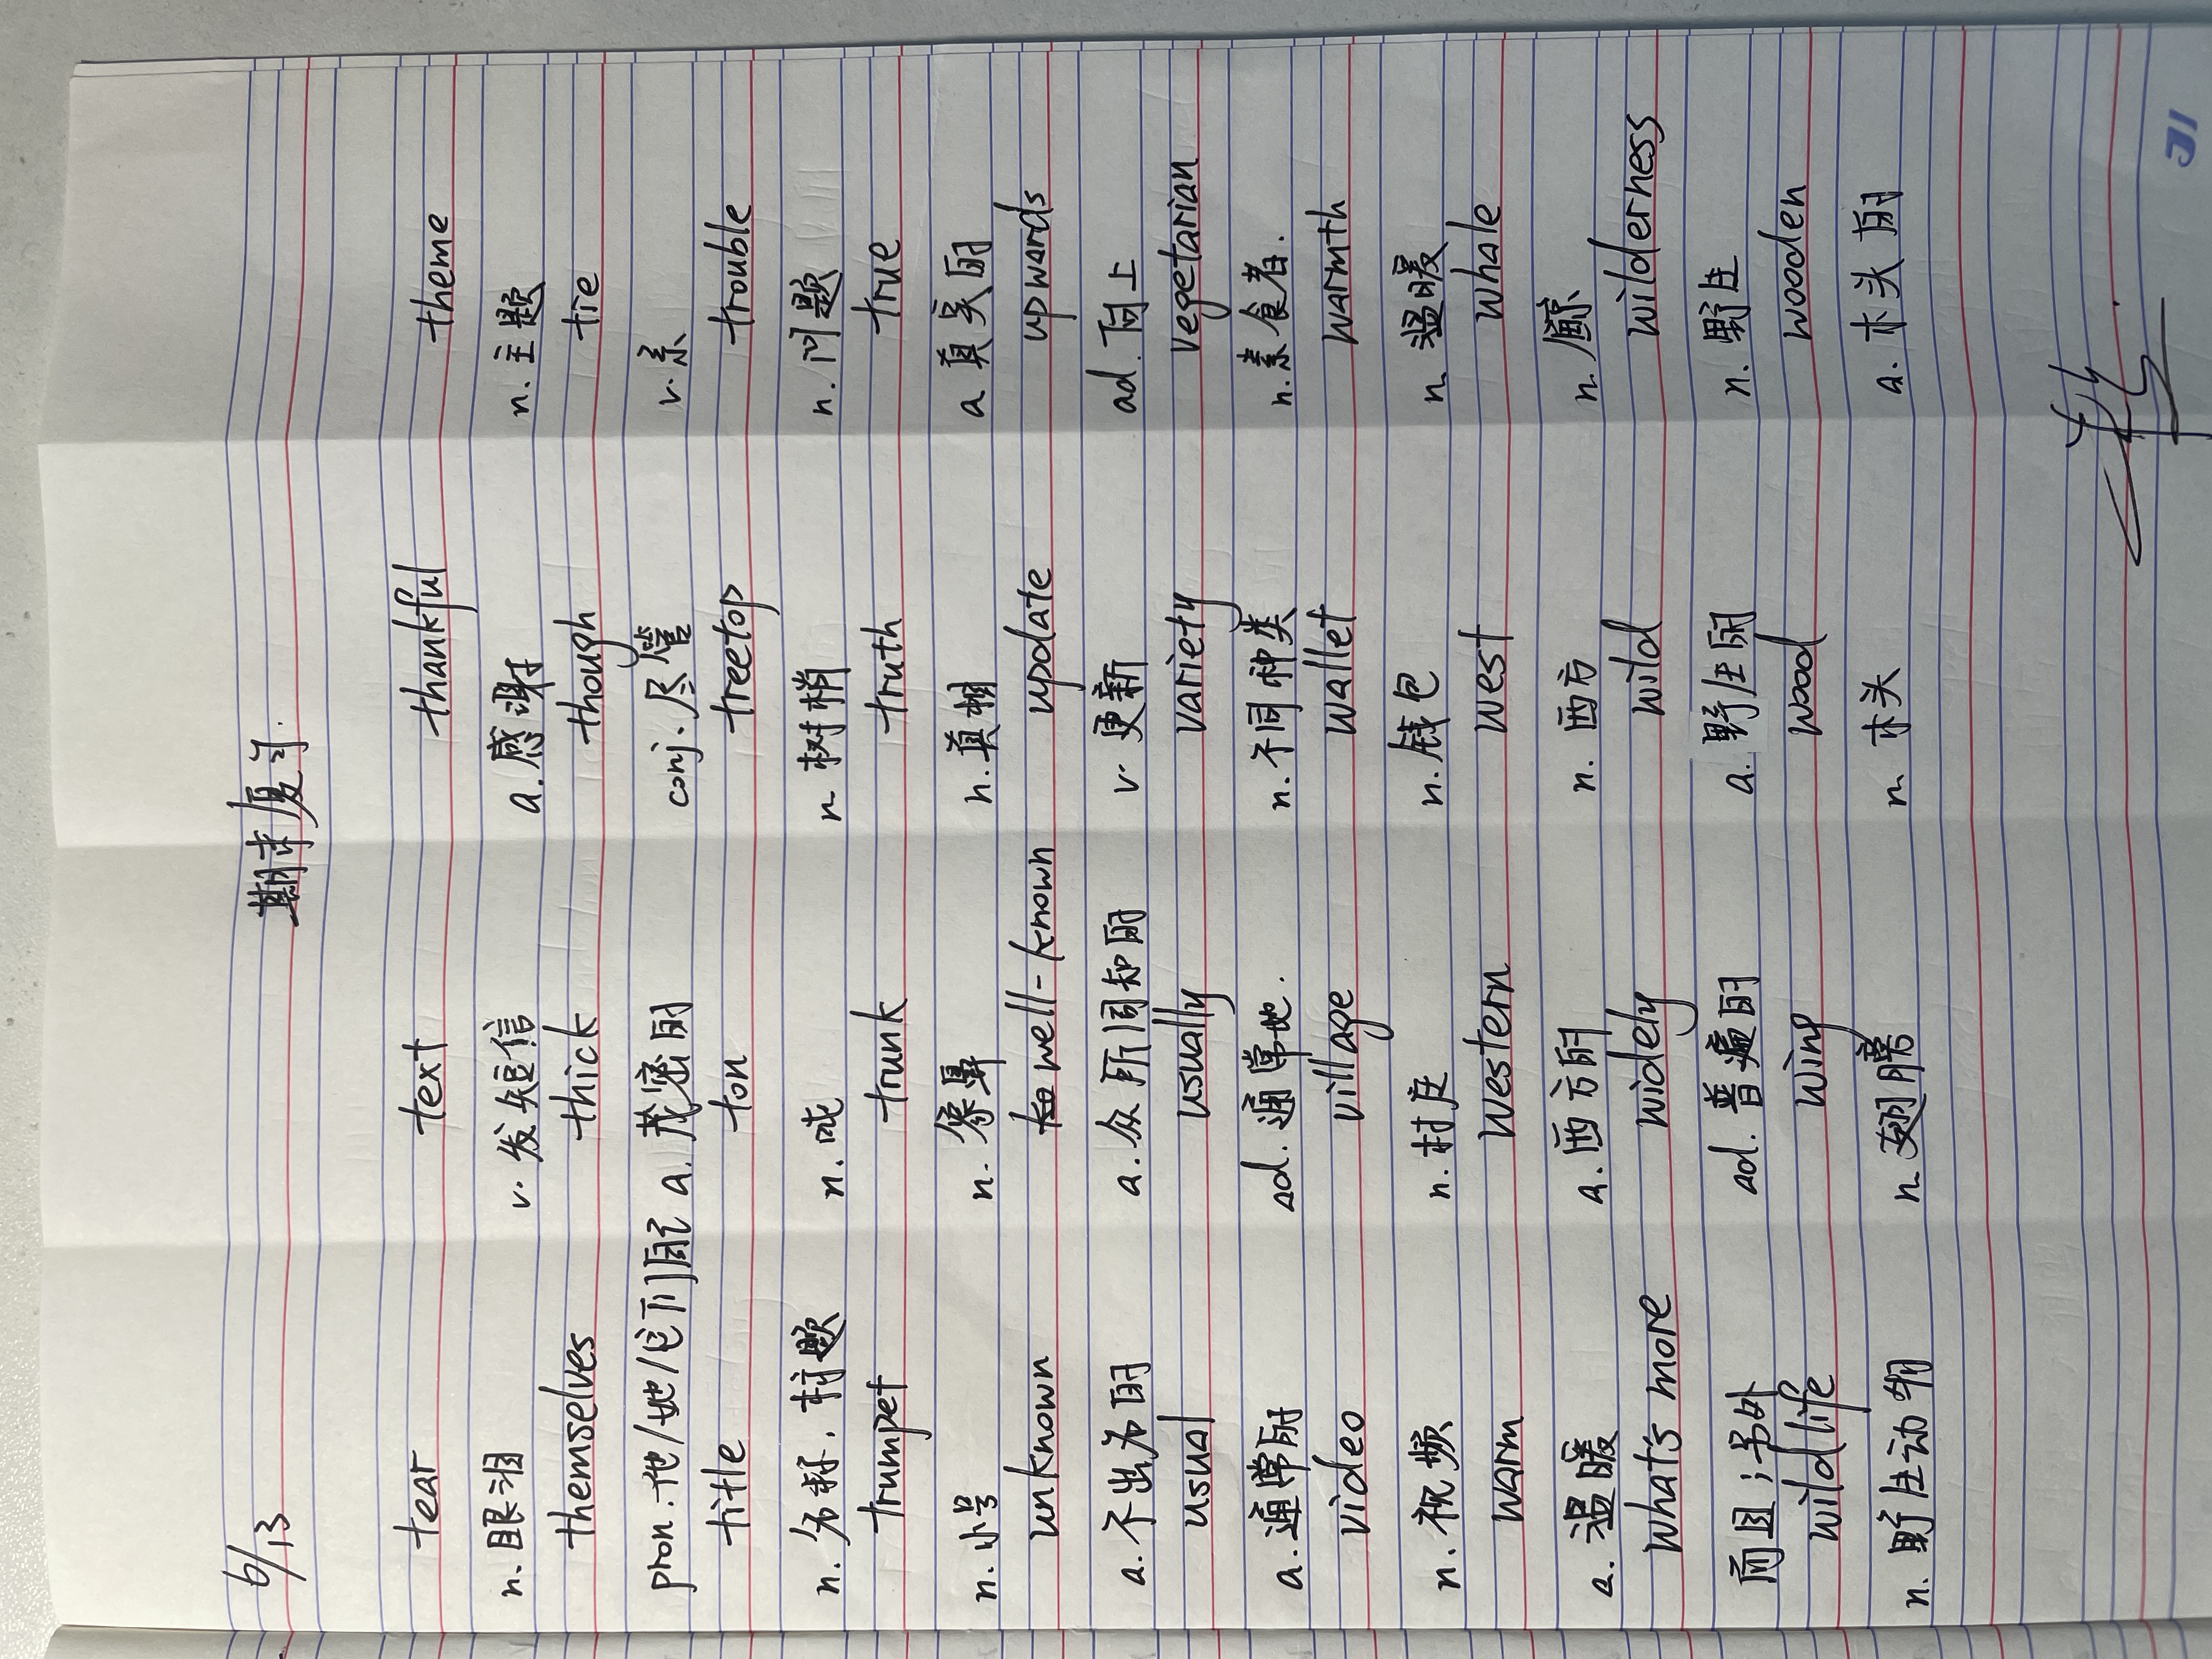 6/13 期末复习.
tear text thankful theme
n.眼泪 v.发短信 a.感谢 n.主题
themselves thick though tie
pron.他/她/它们自己 a.茂密的 conj.尽管 v.系
title ton treetop trouble
n.名称,标题 n.吨 n.树梢 n.问题
trumpet trunk truth true
n.小号 n.象鼻 n.真相 a真实的
unknown well-known update upwards
a.不出名的 a.众所周知的 v.更新 ad.向上
usual usually variety vegetarian
a.通常的 ad.通常地. n.不同种类 n.素食者.
video village wallet warmth
n.视频 n.村庄 n.钱包 n.温暖
warm Western West whale
a.温暖 a.西方的 n.西方 n.鲸
what's more widely wild wilderness
而且;另外 ad.普遍的 a.野生的 n.野生
wildlife wing wood wooden
n.野生动物 n.翅膀 n.木头 a.木头的